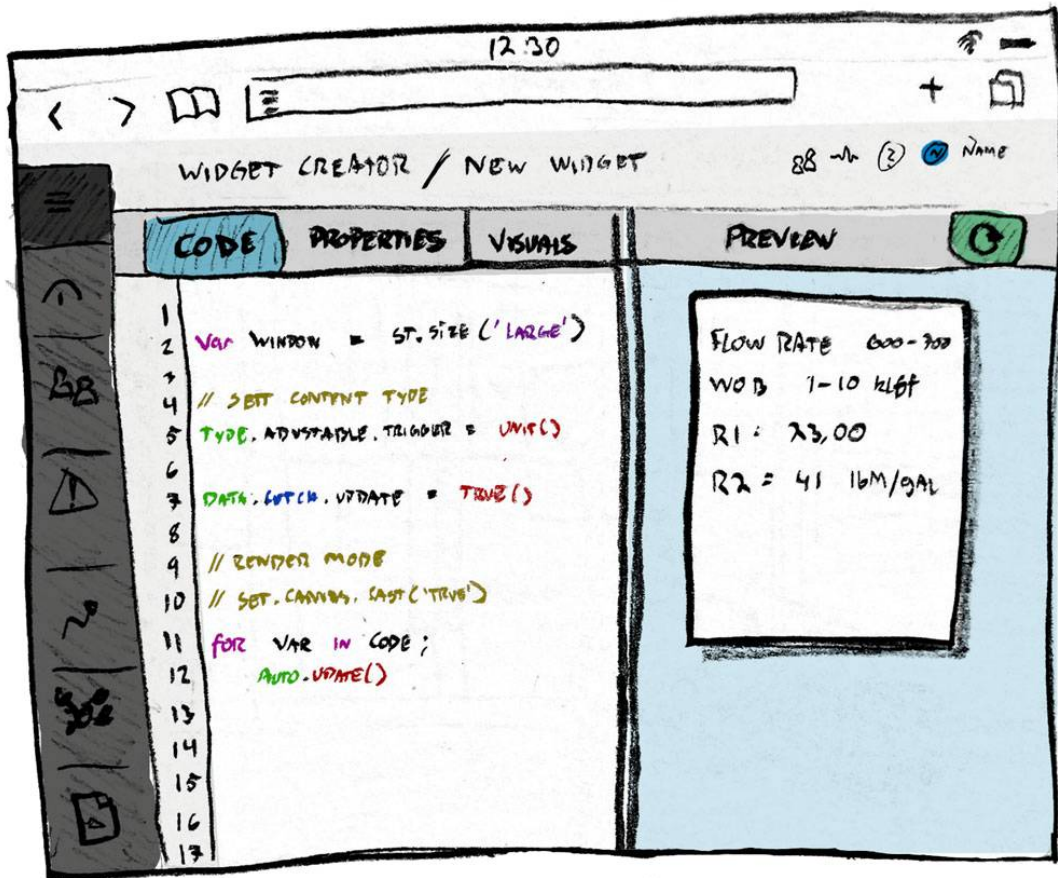 12:30
WIDGET CREATOR / NEW WIDGET
NAME
CODE PROPERTIES VISUALS PREVIEW
1
2 Var WINDOW = ST.SIZE ('LARGE')
3
4 // SETT CONTENT TYPE
5 TYPE.ADVSTABLE.TRIGGER = UNIT()
6
7 DATA.FETCH.UPDATE = TRUE()
8
9 // RENDER MODE
10 // SET.CANVAS.CAST('TRUE')
11 FOR VAR IN CODE;
12 AUTO.UPDATE()
13
14
15
16
17
FLOW RATE
WOB 1-10 klbf
R1: 23,00
R2 = 41 lbM/gAL